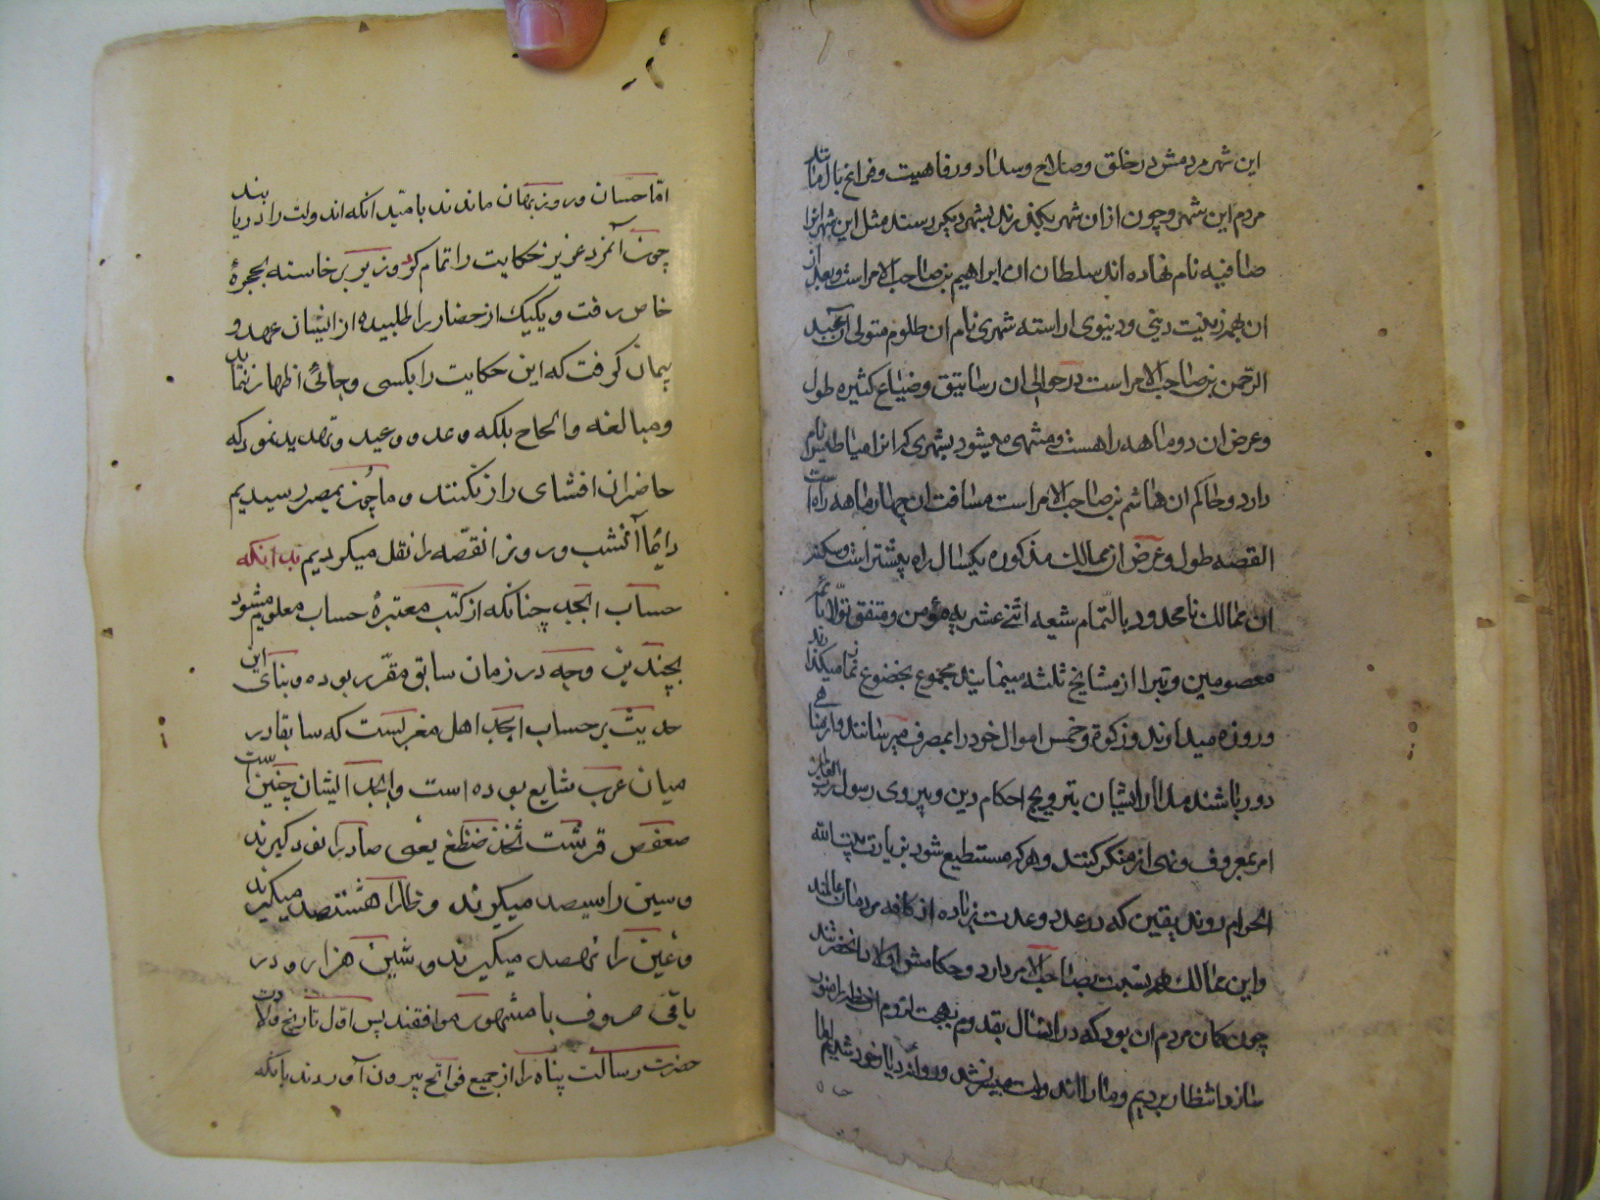 این شهر مردمش در خلق و صلاح و سداد و رفاهیت و فراخ بال مانند
مردم این شهر و چون ازان شهر بگذرند بشهر دیگر رسند مثل این شهر انرا
صافیه نام نهاده اند سلطان ان ابراهیم بن صاحب الامر است و بعد از
ان بهمه زینت دینی و دینوی اراسته شهری نام ان طلوم متولی ان عبد
الرحمن بن صاحب الامر است در حوالی ان رساتیق و ضیاع کثیره طول
و عرض ان دو ماهه راهست و منتهی میشود بشهری که انرا عناطیس نام
دارد و حاکم ان هاشم بن صاحب الامر است مسافت ان چهار ماهه راه است
القصه طول و عرض از ممالک مذکوره یکسال راه بیشتر است و سکنه
ان ممالک نامحدود بالتمام شیعه اثنی عشریه مؤمن و متفق تولا بائمه
معصومین و تبرا از مشایخ ثلثه مینمایند مجموع بخضوع نماز میکذارند
و روزه میدارند و زکوة و خمس اموال خود را بمصرف میرسانند و از مناهی
دور باشند مدار ایشان بترویج احکام دین و پیروی رسول رب العالمین
امر بمعروف و نهی از منکر کنند و هرکه مستطیع شود بزیارت بیت الله
الحرام روند یقین که در عدد و عدت زیاده از کافه مردمان عالمند
و این ممالک همه نسبت بصاحب الامر دارد و حکامش اولاد انحضرتند
چون کمان مردم ان بود که در انسال بقدوم بهجت لزوم ان خطه را منور
سازد انتظار بردیم و ما را اندولت میسر نشد و روانه دیار خود شدیم اما
اما حسان و روزبهان ماندند بامید انکه اندولت را دریابند
چون آنمرد عزیز حکایت را تمام کرد وزیر برخاسته بحجرهٔ
خاص رفت و یکیک از حضار را طلبیده از ایشان عهد و
پیمان کرفت که این حکایت را بکسی و جائی اظهار ننمایند
و مبالغه و الحاح بلکه وعد و وعید و تهدید نمود که
حاضران افشای راز نکنند و ما چون بمصر رسیدیم
دایما آنشب و روز انقصه را نقل میکردیم بدانکه
حساب ابجد چنانکه از کتب معتبرهٔ حساب معلوم میشود
بچندین وجه در زمان سابق مقرر بوده و بنای این
حدیث بر حساب ابجد اهل مغربست که سابقا در
میان عرب شایع بوده است و ابجد ایشان چنین است
صعفص قرست ثخذ ظغش یعنی صاد را نود کیرند
و سین را سیصد میکیرند و ظا را هشتصد میکیرند
و غین را نهصد میکیرند و شین هزار و در
باقی حروف با مشهور موافقند پس اول تاریخ ولادت
حضرت رسالت پناه را از جمیع فواتح بیرون آوردند بانکه